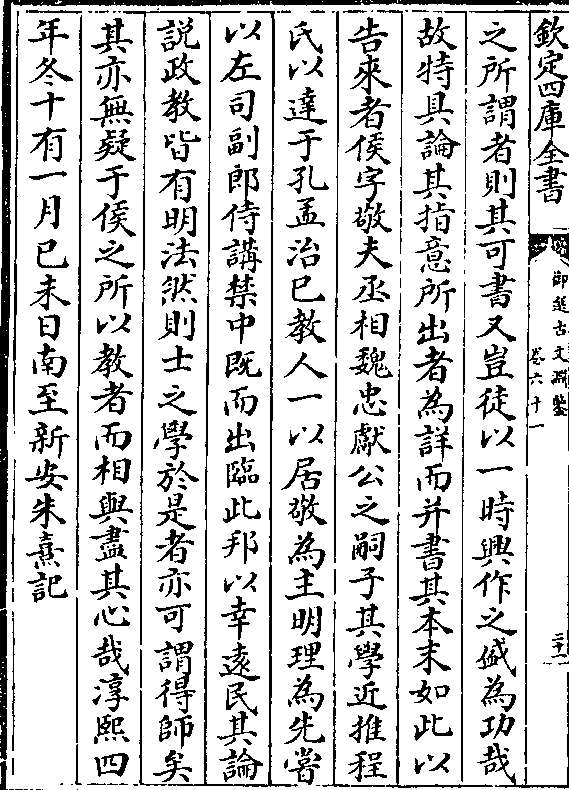 欽定四庫全書
御選古文淵鑒
卷六十一
三十一
之所謂者則其可書又豈徒以一時興作之盛為功哉
故特具論其指意所出者為詳而并書其本末如此以
告來者侯字敬夫丞相魏忠獻公之嗣子其學近推程
氏以達于孔孟治已教人一以居敬為主明理為先嘗
以左司副郎侍講禁中既而出臨此邦以幸遠民其論
說政教皆有明法然則士之學於是者亦可謂得師矣
其亦無疑于侯之所以教者而相與盡其心哉淳熙四
年冬十有一月已未日南至新安朱熹記